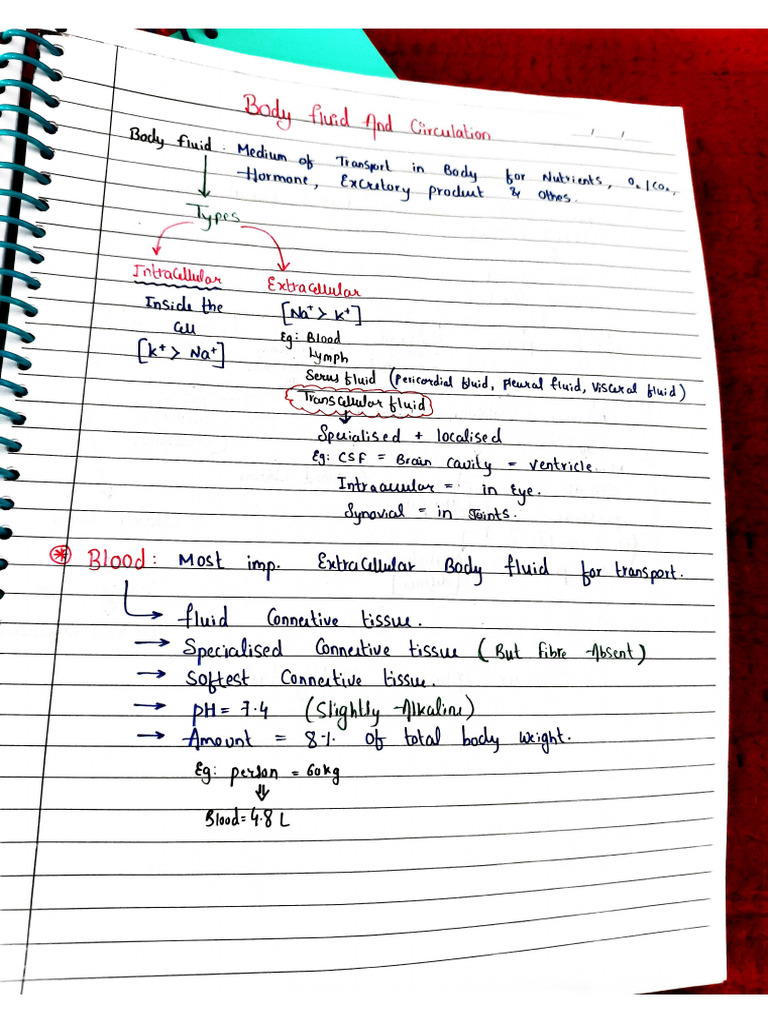 Body fluid And Circulation
/ /
Body fluid : Medium of Transport in Body for Nutrients, O₂/CO₂,
Hormone, Excretory product & Othes.
Types
Intracellular
Extracellular
Inside the
cell
[K⁺ > Na⁺]
[Na⁺ > K⁺]
Eg: Blood
Lymph
Serus fluid (Pericordial fluid, Pleural fluid, Visceral fluid)
Transcellular fluid
Specialised + localised
Eg: CSF = Brain Cavity = Ventricle
= in Eye.
Synovial = in Joints.
* Blood: Most imp. Extracellular Body fluid for transport.
fluid Connective tissue.
→ Specialised Connective tissue (But Fibre Absent)
→ Softest Connective tissue.
→ pH = 7.4 (Slightly Alkaline)
→ Amount = 8% of total body weight.
Eg: person = 60kg
Blood = 4.8 L